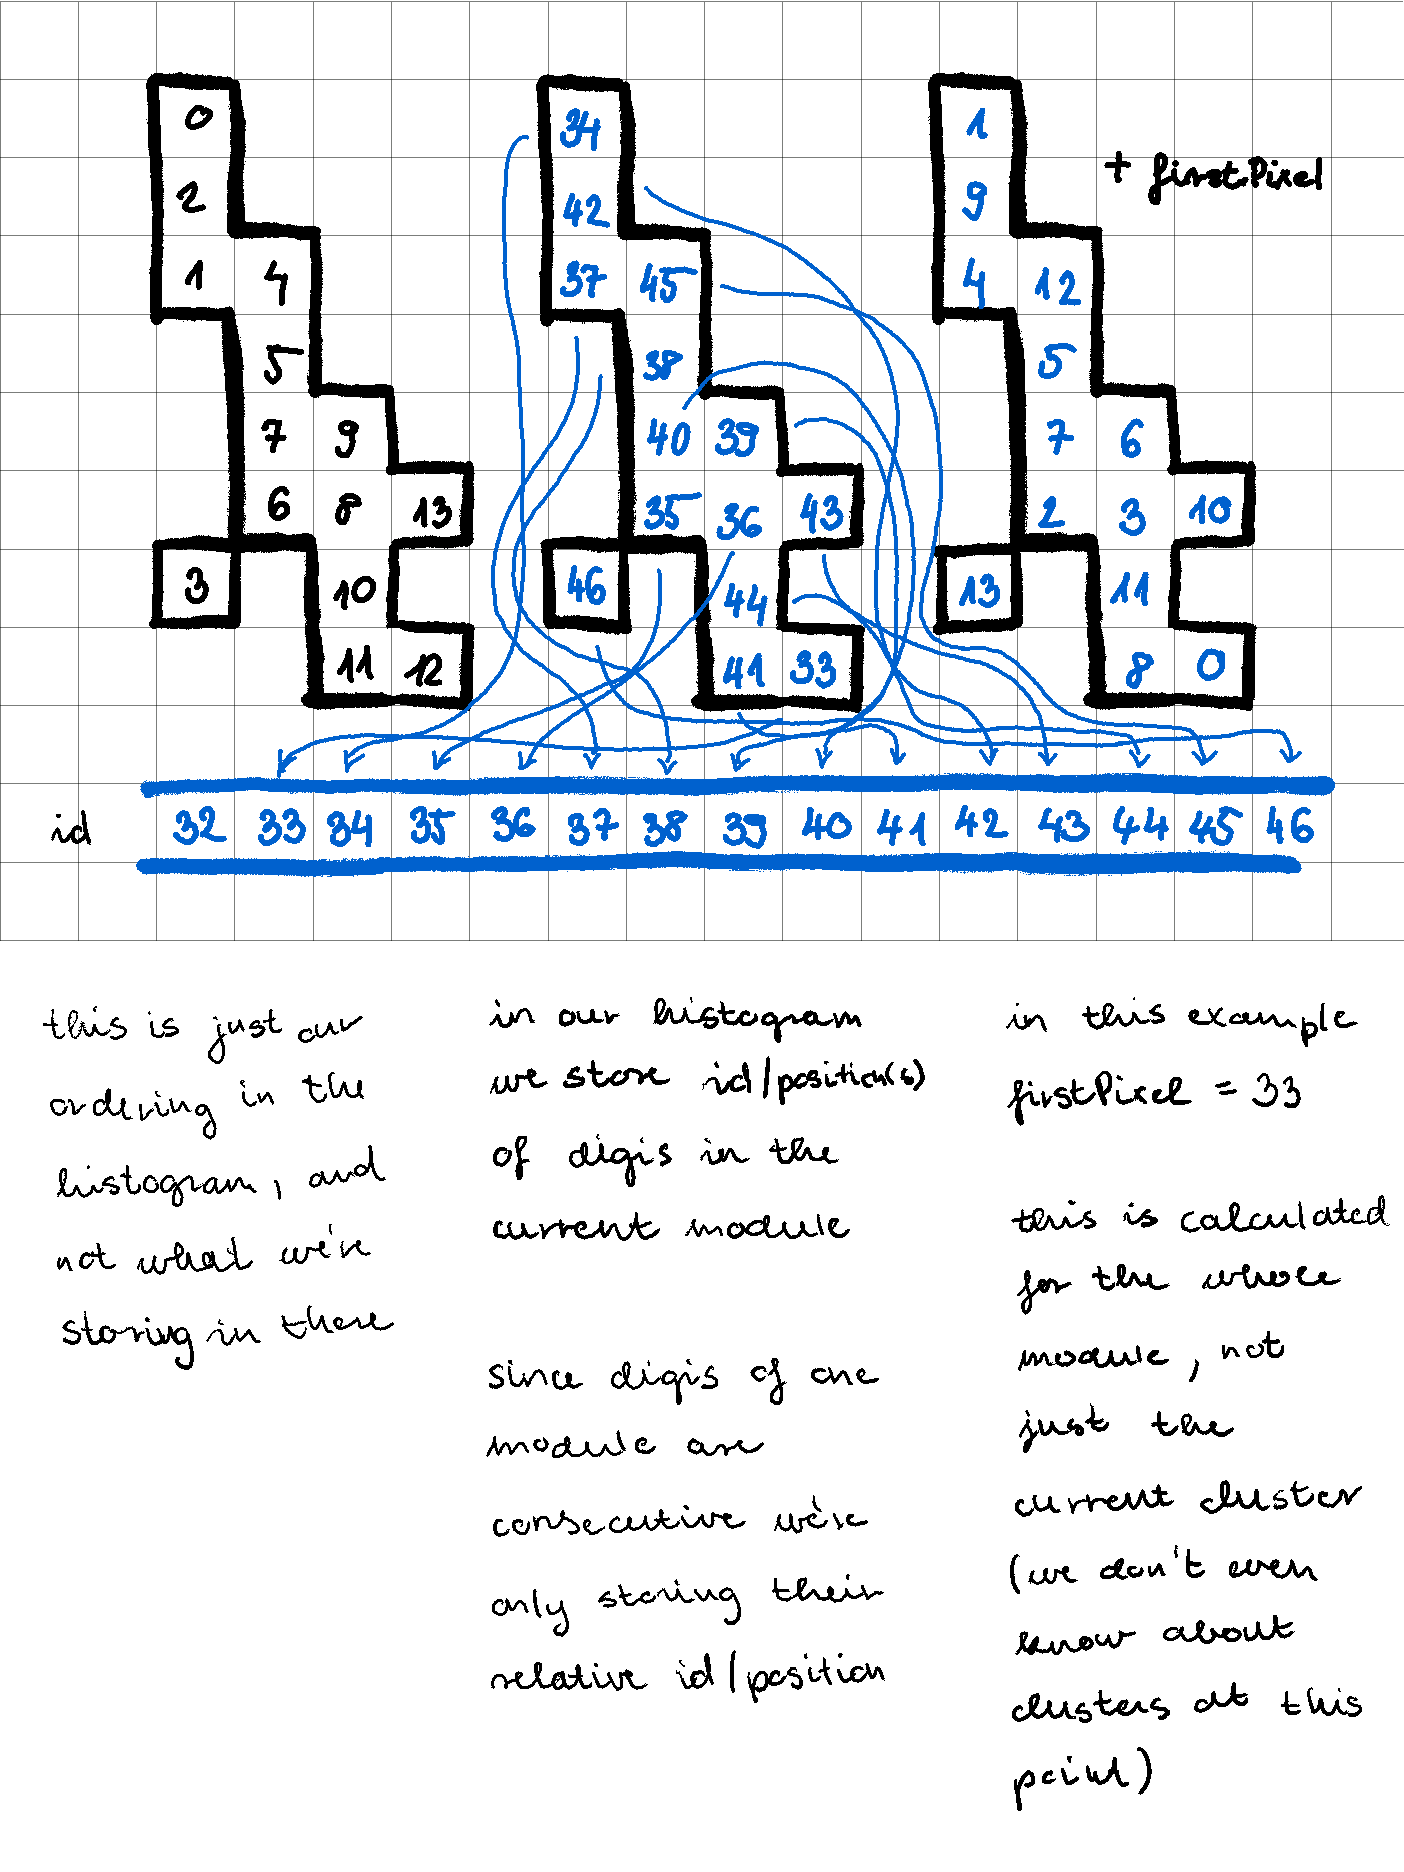 0 34 1
2 42 9 + firstPixel
1 4 37 45 4 12
5 38 5
7 9 40 39 7 6
6 8 13 35 36 43 2 3 10
3 10 46 44 13 11
11 12 41 33 8 0
id 32 33 34 35 36 37 38 39 40 41 42 43 44 45 46
this is just our
ordering in the
histogram, and
not what we're
storing in there
in our histogram
we store id/position(s)
of digis in the
current module
since digis of one
module are
consecutive we're
only storing their
relative id/position
in this example
firstPixel = 33
this is calculated
for the whole
module, not
just the
current cluster
(we don't even
know about
clusters at this
point)